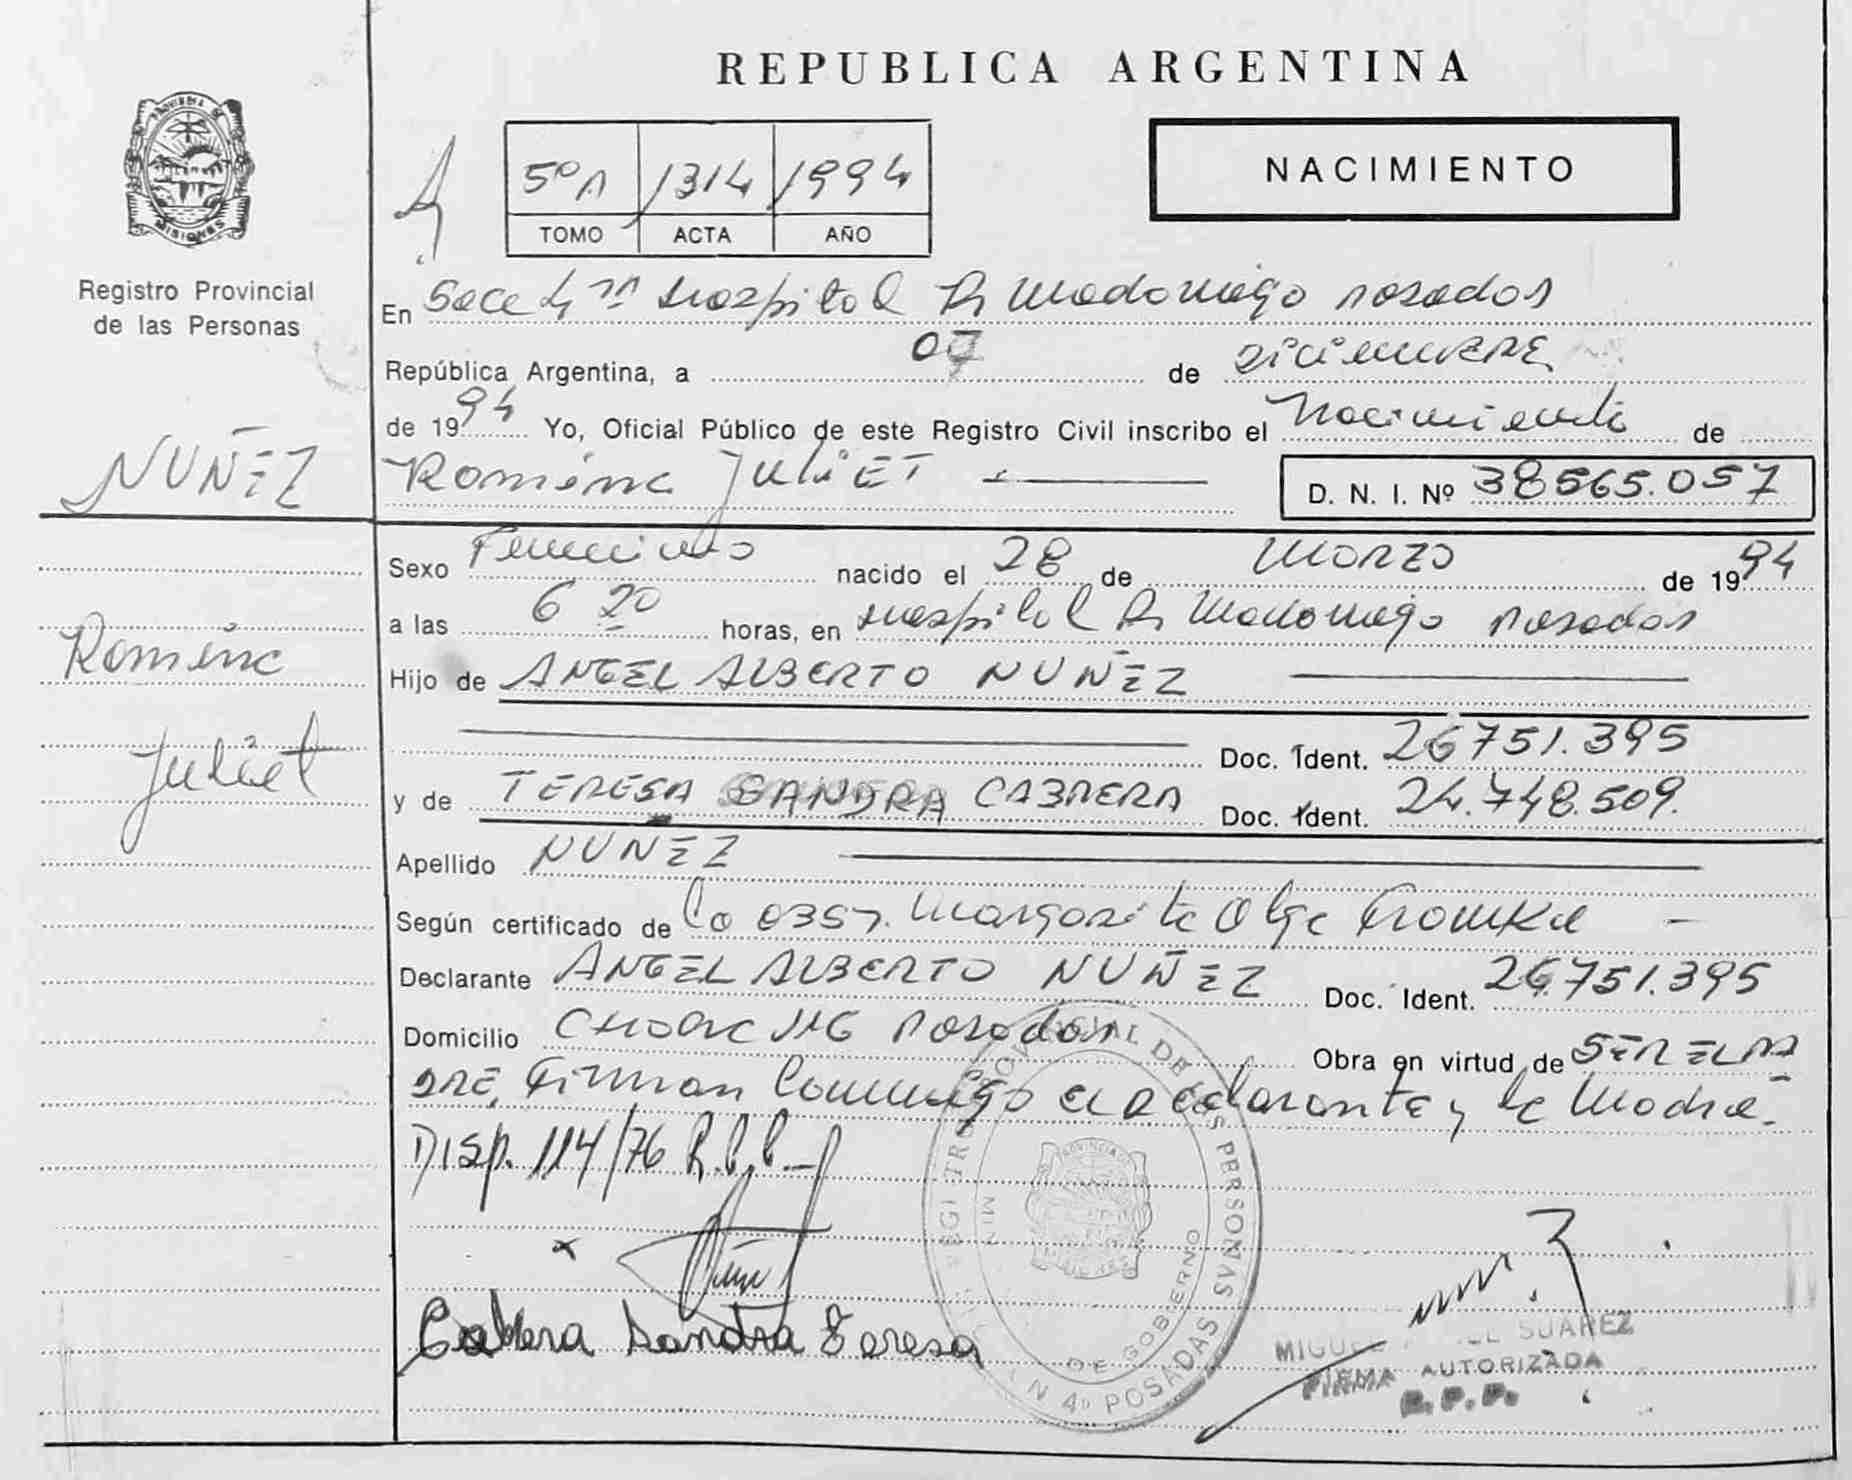 REPUBLICA ARGENTINA
PROVINCIA DE
MISIONES
Registro Provincial
de las Personas
5º A 1314 1994
TOMO ACTA AÑO
NACIMIENTO
En Secc 4ª Hospital Dr Madariaga Posadas
República Argentina, a 07 de DICIEMBRE
de 1994 Yo, Oficial Público de este Registro Civil inscribo el Nacimiento de
NUÑEZ
Romina JULIET
D. N. I. Nº 38565.057
Sexo Femenino nacido el 28 de MARZO de 1994
a las 6 20 horas, en Hospital Dr Madariaga Posadas
Romina
Hijo de ANGEL ALBERTO NUÑEZ
Juliet
Doc. Ident. 26751.395
y de TERESA SANDRA CABRERA Doc. Ident. 24.748.509.
Apellido NUÑEZ
Según certificado de la OBST. Margarita Olga
Declarante ANGEL ALBERTO NUÑEZ Doc. Ident. 26.751.395
Domicilio CHACRA 116 Posadas Obra en virtud de SER EL PA
DRE, Firman Conmigo el declarante y la Madre.
Disp. 114/76 R.P.P.
Cabrera Sandra Teresa
PROVINCIAL DE LAS PERSONAS
DE GOBIERNO
POSADAS
SUAREZ
FIRMA AUTORIZADA
R.P.P.